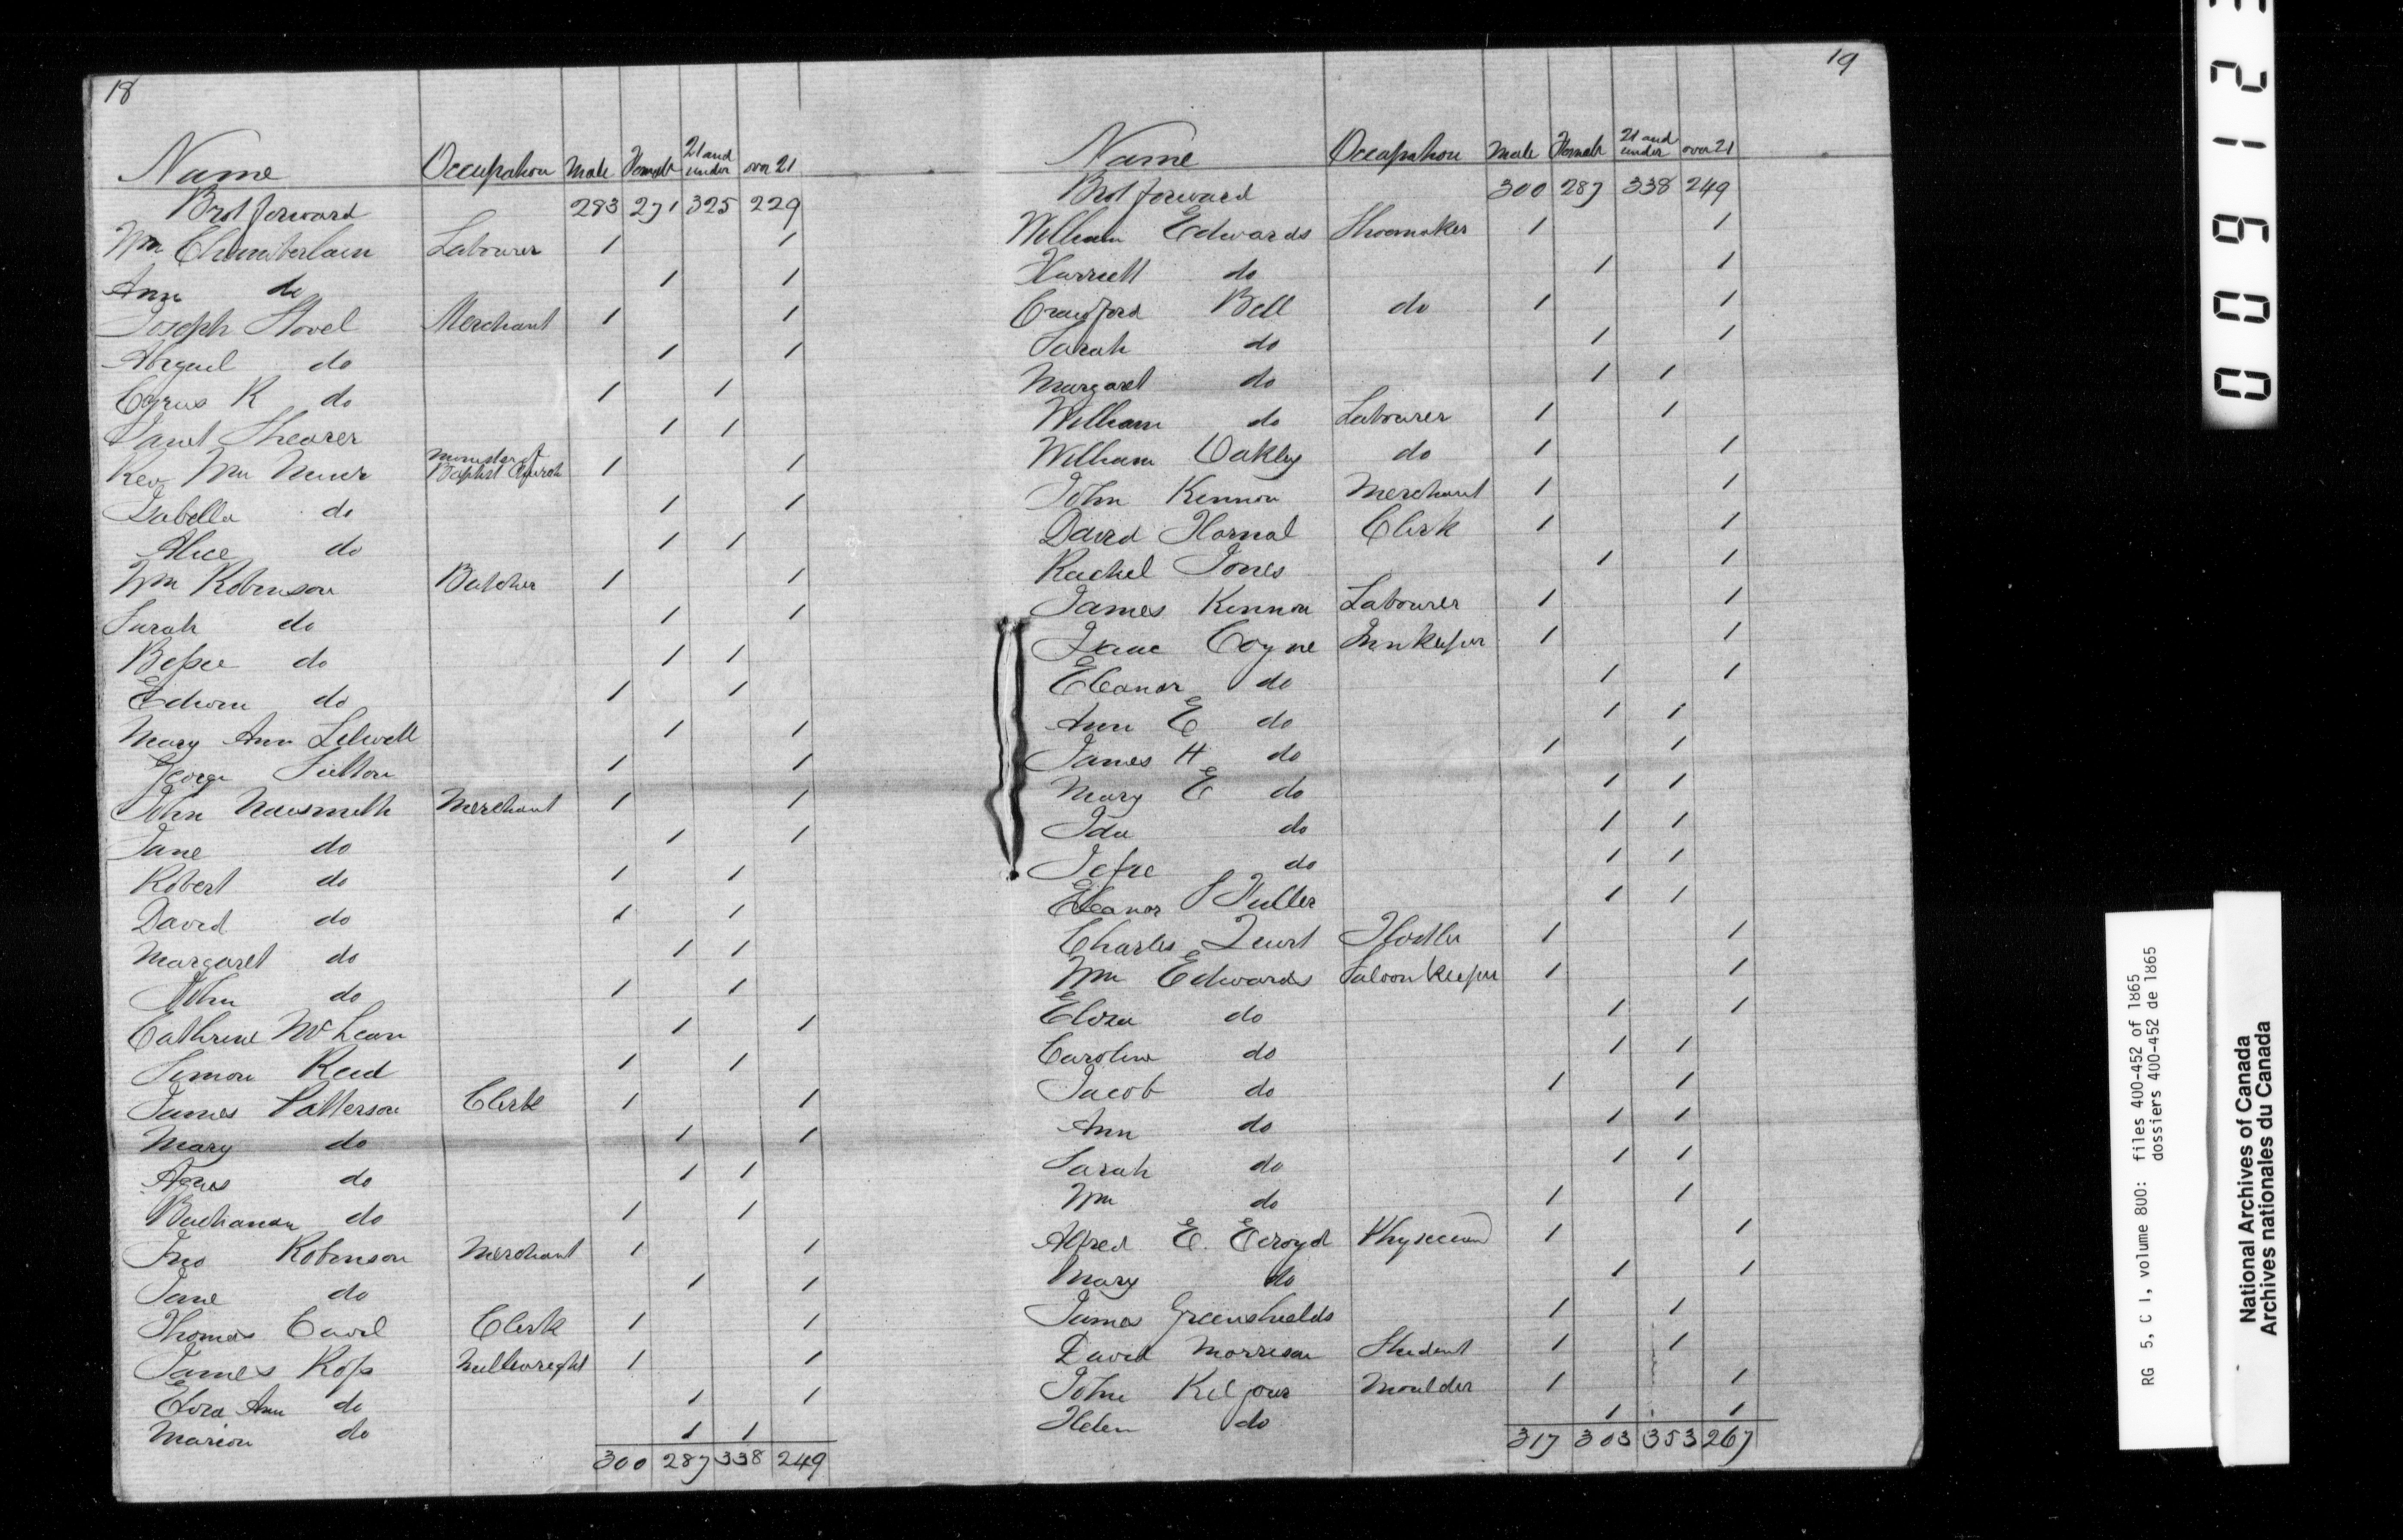 18
Name Occupation Male Female 21 and under over 21
Brot forward 283 271 325 229
Wm Chamberlain Labourer 1 1
Ann do 1 1
Joseph Stovel Merchant 1 1
Abigail do 1 1
Cyrus R do 1 1
Janet Shearer 1 1
Rev Wm Muir Minister of Baptist Church 1 1
Isabella do 1 1
Alice do 1 1
Wm Robinson Butcher 1 1
Sarah do 1 1
Bessie do 1 1
Edwin do 1 1
Mary Ann 1 1
George Sutton 1 1
John Naismith Merchant 1 1
Jane do 1 1
Robert do 1 1
David do 1 1
Margaret do 1 1
John do 1 1
Cathrine McLean 1 1
Simon Reid 1 1
James Patterson Clerk 1 1
Mary do 1 1
Agnes do 1 1
Buchanan do 1 1
Jno Robinson Merchant 1 1
Jane do 1 1
Thomas Clerk 1 1
James Ross Millwright 1 1
Ann do 1 1
Marion do 1 1
300 287 338 249
19
Name Occupation Male Female 21 and under over 21
Brot forward 300 287 338 249
William Edwards Shoemaker 1 1
Harriett do 1 1
Crawford Bell do 1 1
Sarah do 1 1
Margaret do 1 1
William do Labourer 1 1
William Oakley do 1 1
John Kennon Merchant 1 1
David Hornal Clerk 1 1
Rachel Jones 1 1
James Kennon Labourer 1 1
Isaac Coyne Innkeeper 1 1
Eleanor do 1 1
Ann E do 1 1
James H do 1 1
Mary E do 1 1
Ida do 1 1
Jessie do 1 1
Eleanor Fuller 1 1
Charles Hostler 1 1
Wm Edwards Saloon Keeper 1 1
Eliza do 1 1
Caroline do 1 1
Jacob do 1 1
Ann do 1 1
Sarah do 1 1
Wm do 1 1
Alfred E. Ecroyd Physician 1 1
Mary do 1 1
James Greenshields 1 1
David Morrison Student 1 1
John Kilgour Moulder 1 1
Helen do 1 1
317 303 353 267
009123
RG 5, C 1, volume 800: files 400-452 of 1865
dossiers 400-452 de 1865
National Archives of Canada
Archives nationales du Canada